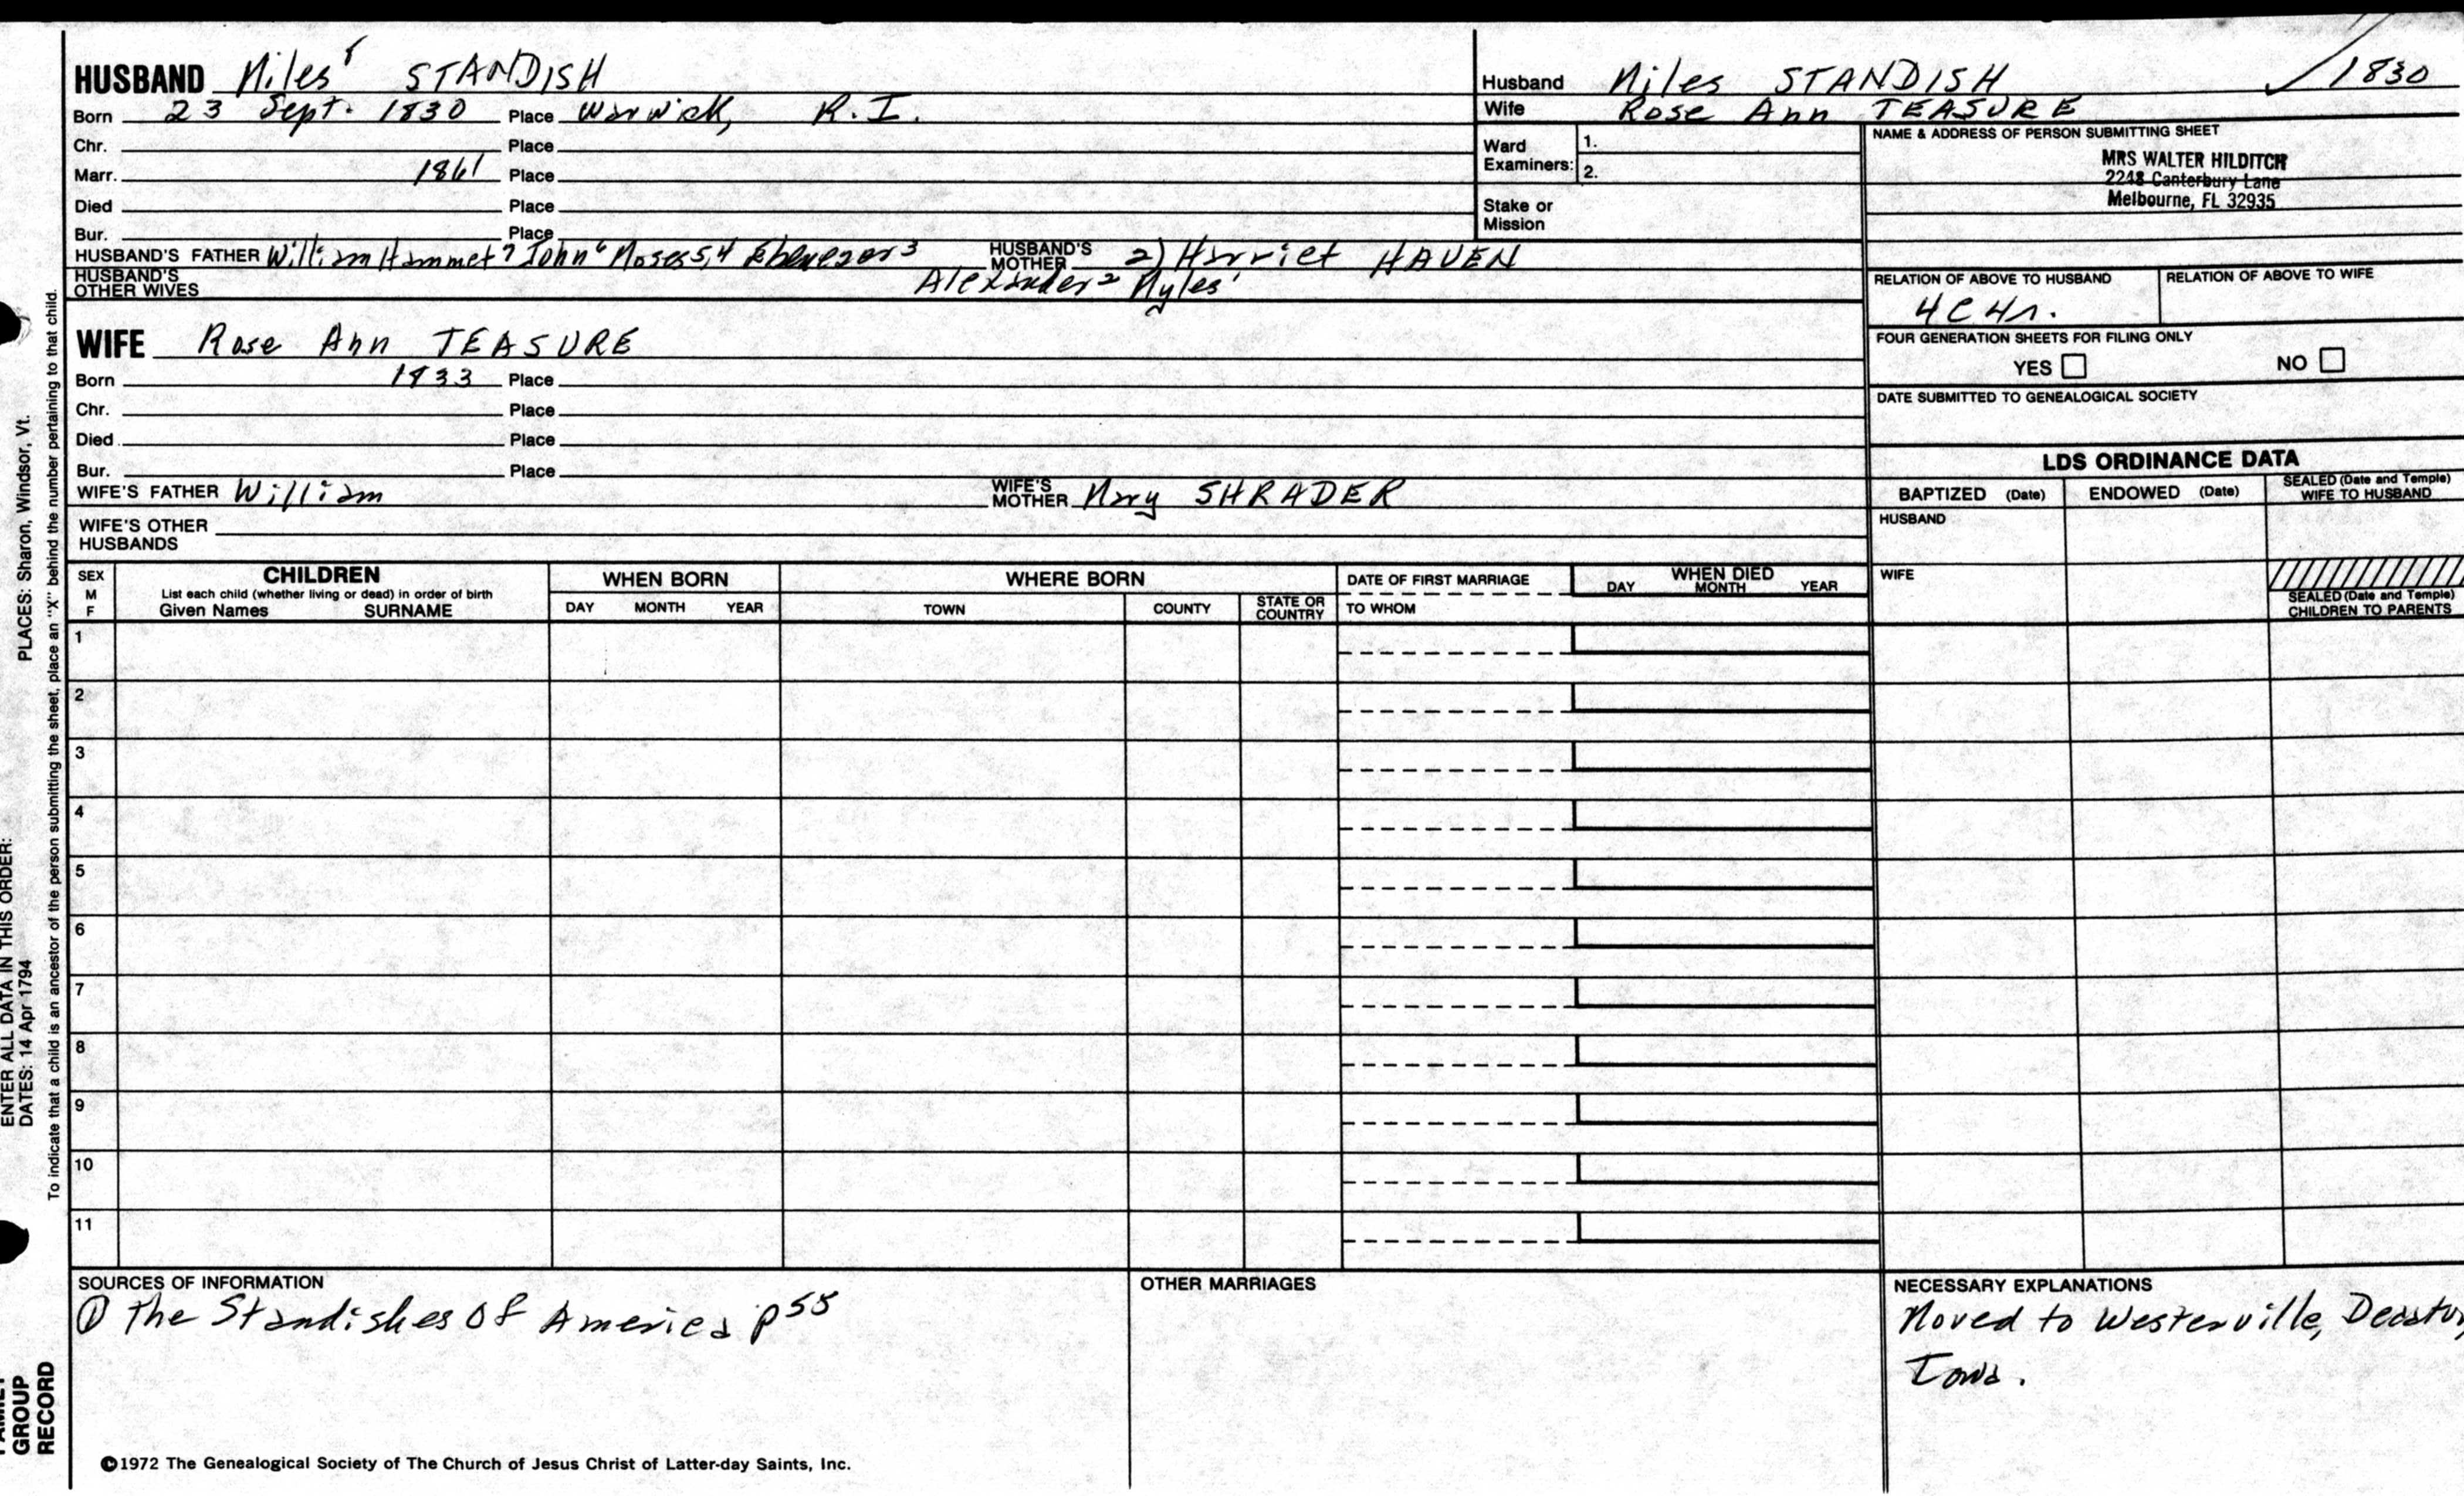 HUSBAND Miles⁸ STANDISH
Born 23 Sept. 1830 Place Warwick, R.I.
Chr. Place
Marr. 1861 Place
Died Place
Bur. Place
HUSBAND'S FATHER William Hammet⁷ John⁶ Moses⁵,⁴ Ebenezer³ HUSBAND'S MOTHER 2) Harriet HAVEN
HUSBAND'S OTHER WIVES Alexander² Myles¹
WIFE Rose Ann TEASURE
Born 1833 Place
Chr. Place
Died Place
Bur. Place
WIFE'S FATHER William WIFE'S MOTHER Mary SHRADER
WIFE'S OTHER HUSBANDS
Husband Miles STANDISH ✓ 1830
Wife Rose Ann TEASURE
Ward Examiners: 1.
2.
Stake or Mission
NAME & ADDRESS OF PERSON SUBMITTING SHEET
MRS WALTER HILDITCH
2248 Canterbury Lane
Melbourne, FL 32935
RELATION OF ABOVE TO HUSBAND RELATION OF ABOVE TO WIFE
4C4r.
FOUR GENERATION SHEETS FOR FILING ONLY
YES NO
DATE SUBMITTED TO GENEALOGICAL SOCIETY
LDS ORDINANCE DATA
BAPTIZED (Date) ENDOWED (Date) SEALED (Date and Temple) WIFE TO HUSBAND
HUSBAND
WIFE
SEALED (Date and Temple) CHILDREN TO PARENTS
SEX M F
CHILDREN
List each child (whether living or dead) in order of birth
Given Names SURNAME
WHEN BORN
DAY MONTH YEAR
WHERE BORN
TOWN COUNTY STATE OR COUNTRY
DATE OF FIRST MARRIAGE
TO WHOM
WHEN DIED
DAY MONTH YEAR
1
2
3
4
5
6
7
8
9
10
11
SOURCES OF INFORMATION
① The Standishes of America p 55
OTHER MARRIAGES
NECESSARY EXPLANATIONS
Moved to Westerville, Decatur
Iowa.
©1972 The Genealogical Society of The Church of Jesus Christ of Latter-day Saints, Inc.
PLACES: Sharon, Windsor, Vt.
To indicate that a child is an ancestor of the person submitting the sheet, place an "X" behind the number pertaining to that child.
ENTER ALL DATA IN THIS ORDER:
DATES: 14 Apr 1794
FAMILY
GROUP
RECORD